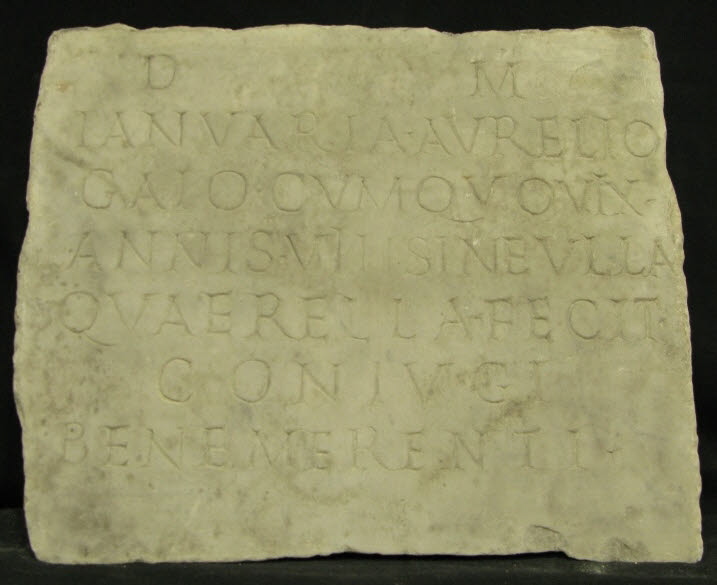 D M
IANVARIA·AVRELIO
GAIO·CVMQVOVIX·
ANNIS·VIIII·SINEVLLA
QVAERELLA·FECIT·
CONIVGI
BENEMERENTI·